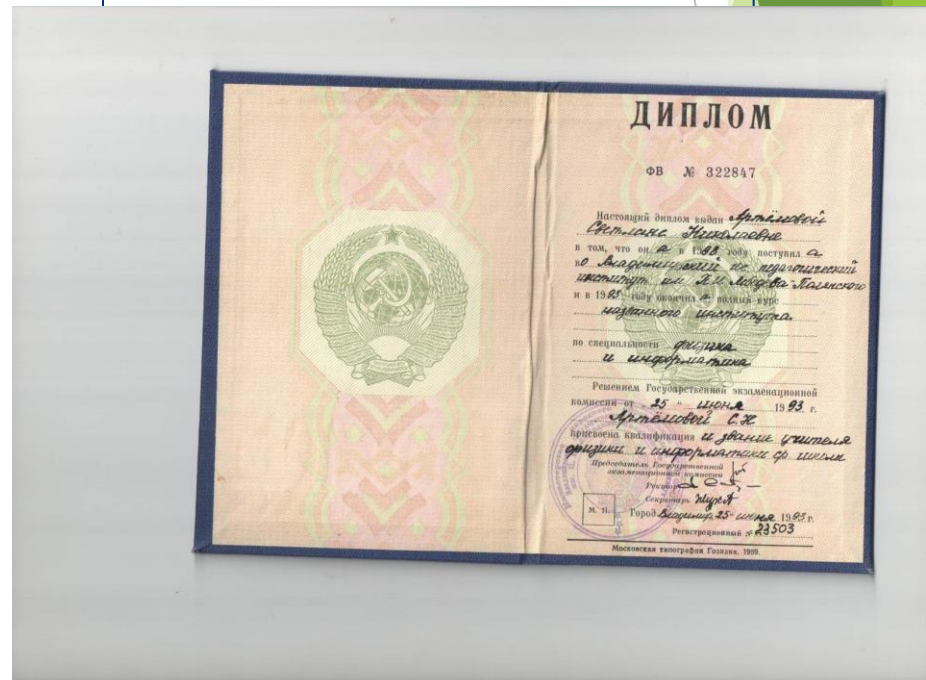 ДИПЛОМ
ФВ № 322847
Настоящий диплом выдан Артёмовой
Светлане Николаевне
в том, что он а в 1988 году поступил а
во Владимирский гос педагогический
институт им П.И Лебедева-Полянского
и в 1993 году окончил а полный курс
названного института
по специальности физика
и информатика
Решением Государственной экзаменационной
комиссии от „ 25 “ июня 1993 г.
Артёмовой С.Н
присвоена квалификация и звание учителя
физики и информатики ср. школы
Председатель Государственной
экзаменационной комиссии
Ректор
Секретарь
М. П. Город Владимир 25 июня 1993 г.
Регистрационный № 23503
Московская типография Гознака. 1989.